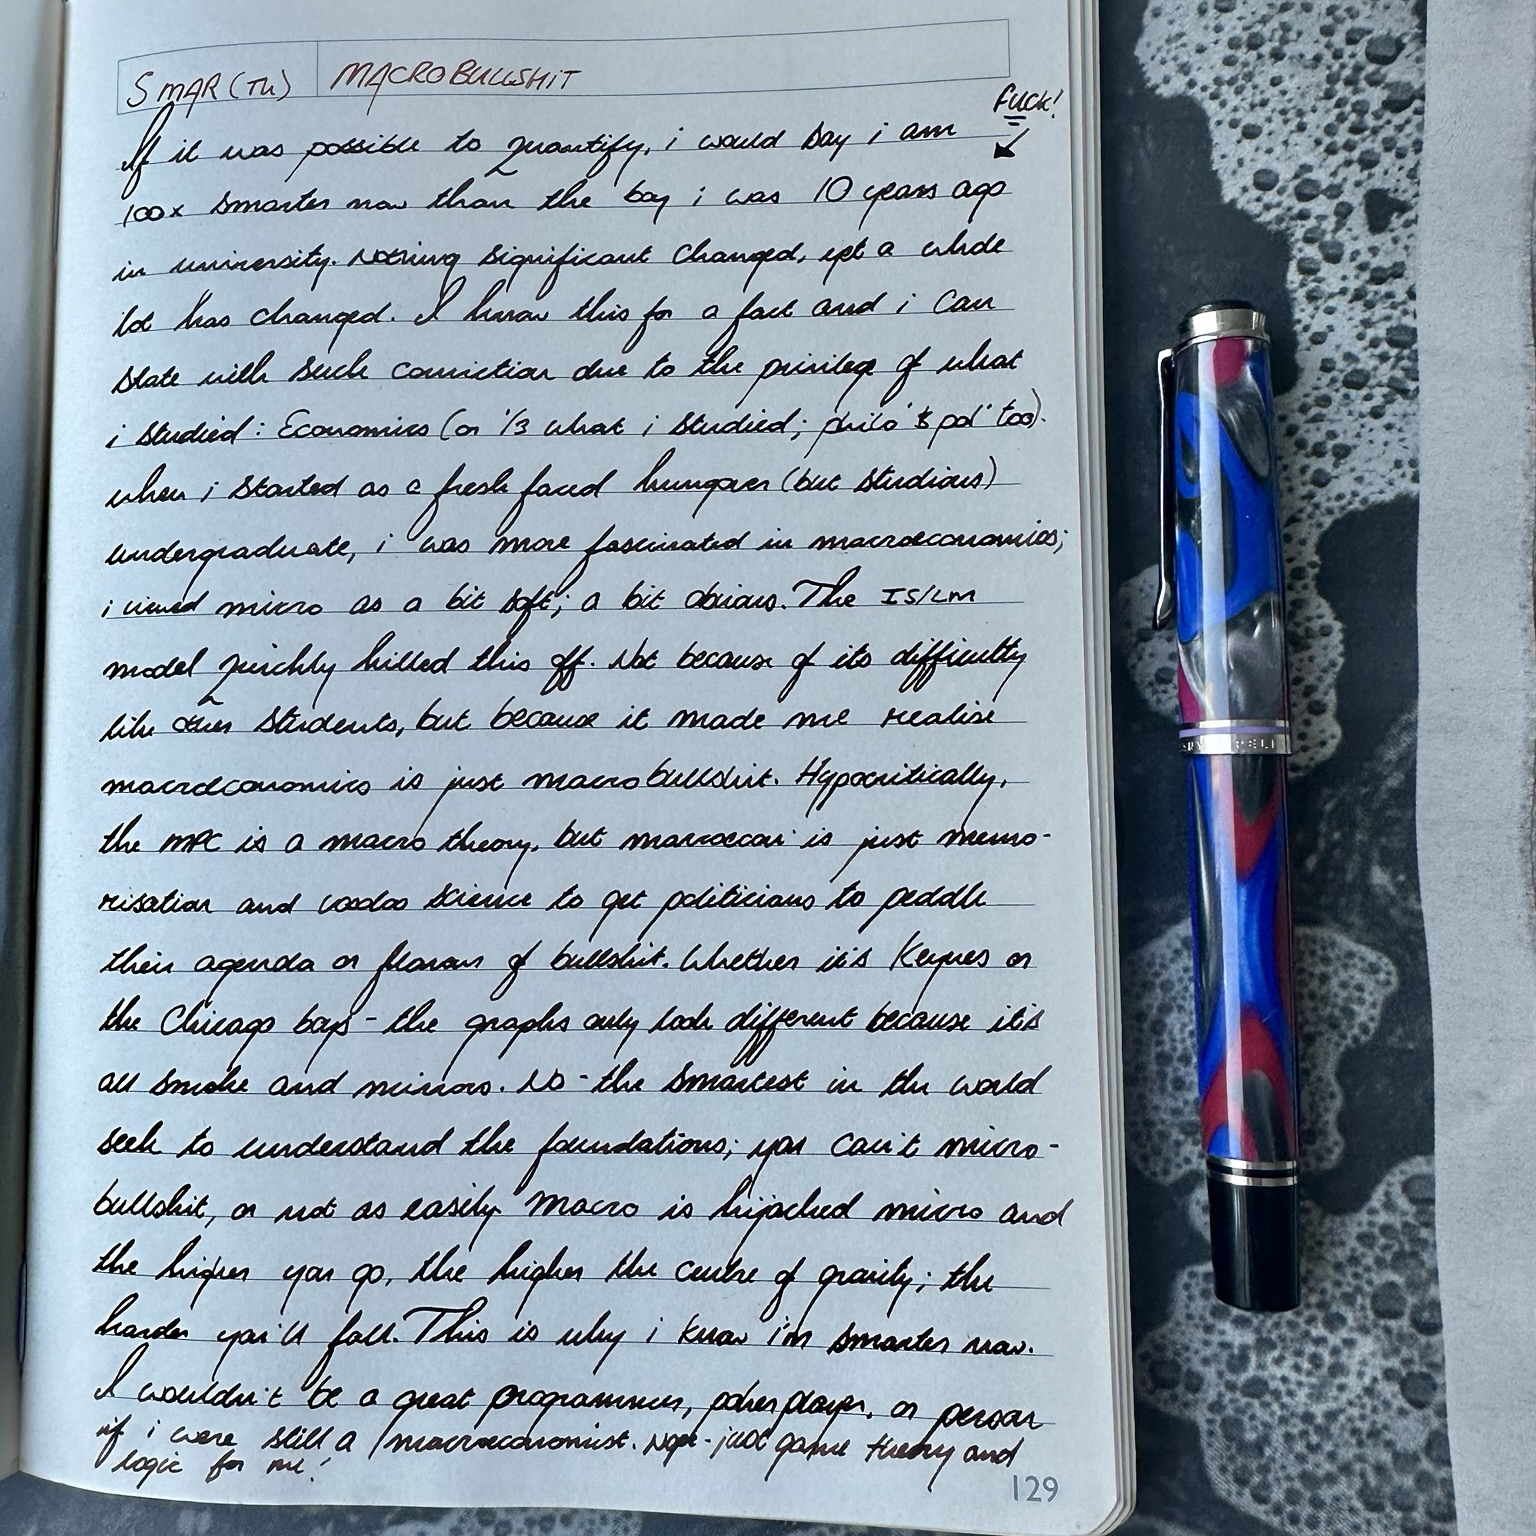 5 MAR (TH) MACROBULLSHIT
FUCK!
If it was possible to quantify, i would say i am
100x smarter now than the boy i was 10 years ago
in university. Nothing significant changed, yet a whole
lot has changed. I know this for a fact and i can
state with such conviction due to the privilege of what
i studied: Economics (or 1/3 what i studied; philo' & pol' too).
when i started as a fresh faced hungover (but studious)
undergraduate, i was more fascinated in macroeconomics;
i viewed micro as a bit soft; a bit obvious. The IS/LM
model quickly killed this off. Not because of its difficulty
like other students, but because it made me realise
macroeconomics is just macrobullshit. Hypocritically,
the MPC is a macro theory, but macroecon' is just memo-
risation and voodoo science to get politicians to peddle
their agenda or flavour of bullshit. Whether it's Keynes or
the Chicago boys - the graphs only look different because it's
all smoke and mirrors. No - the smartest in the world
seek to understand the foundations; you can't micro-
bullshit, or not as easily. Macro is hijacked micro and
the higher you go, the higher the centre of gravity; the
harder you'll fall. This is why i know i'm smarter now.
I wouldn't be a great programmer, poker player, or person
if i were still a macroeconomist. Nope - just game theory and
logic for me!
129